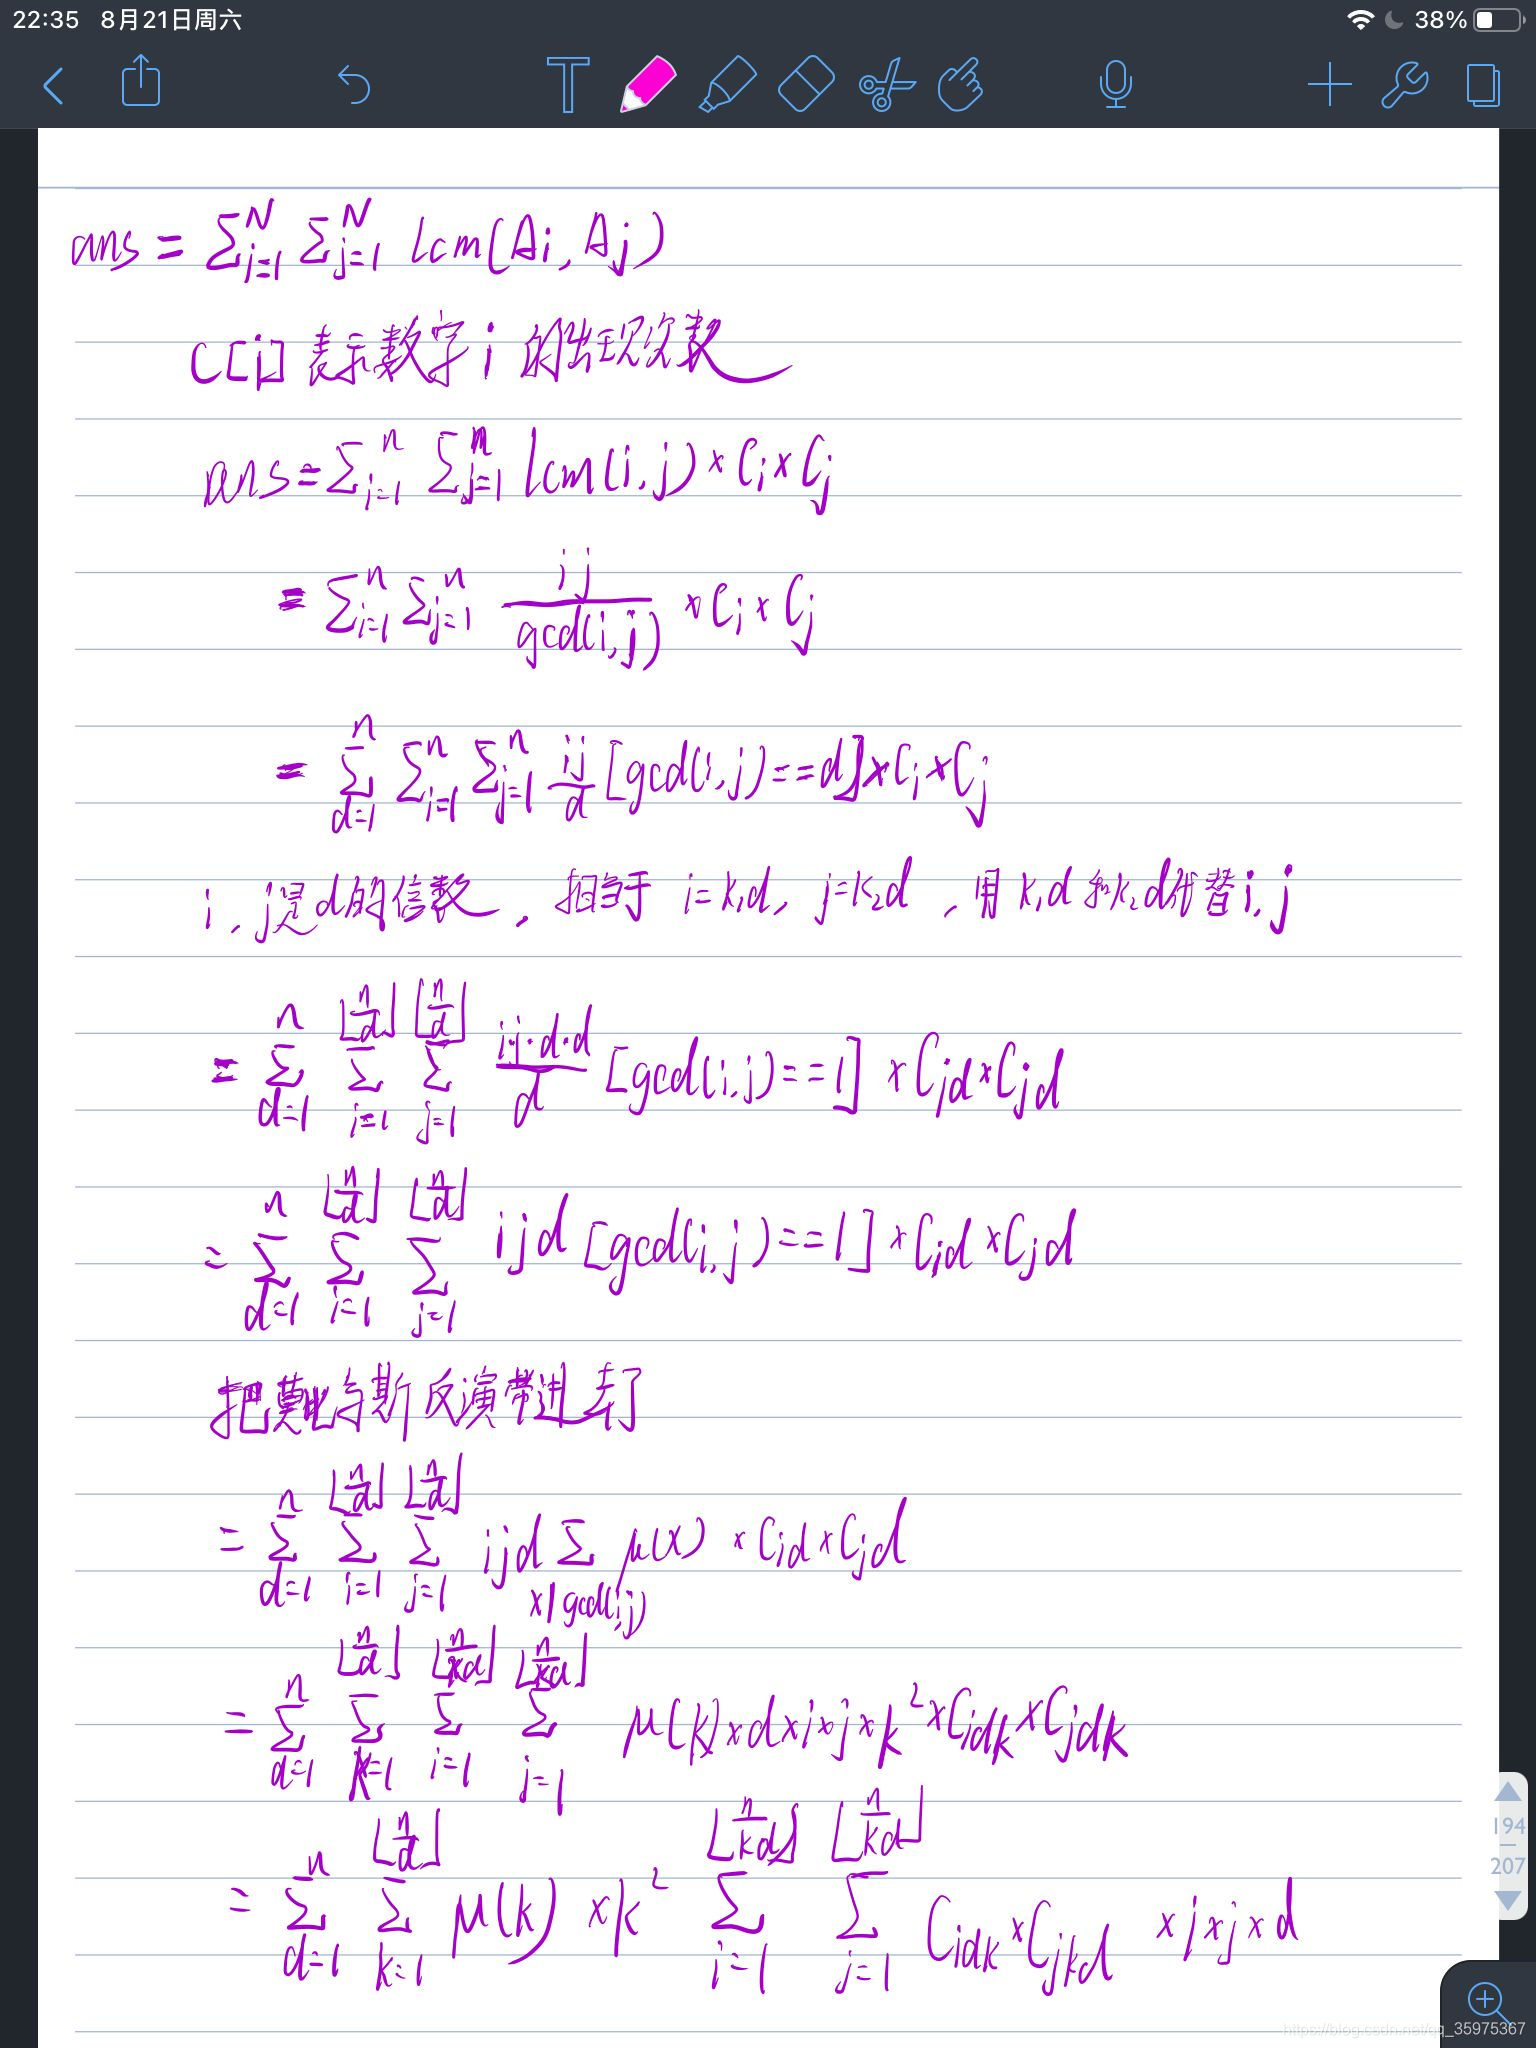 22:35 8月21日周六 38%
ans = Σ_{i=1}^N Σ_{j=1}^N lcm(Ai, Aj)
C[i] 表示数字 i 的出现次数
ans = Σ_{i=1}^n Σ_{j=1}^n lcm(i, j) × Ci × Cj
= Σ_{i=1}^n Σ_{j=1}^n \frac{ij}{gcd(i, j)} × Ci × Cj
= Σ_{d=1}^n Σ_{i=1}^n Σ_{j=1}^n \frac{ij}{d} [gcd(i, j)==d] × Ci × Cj
i, j是d的倍数, 相当于 i=k₁d, j=k₂d, 用 k₁d 和k₂d代替i, j
= Σ_{d=1}^n Σ_{i=1}^{⌊\frac{n}{d}⌋} Σ_{j=1}^{⌊\frac{n}{d}⌋} \frac{i·j·d·d}{d} [gcd(i, j)==1] × C_{id} × C_{jd}
= Σ_{d=1}^n Σ_{i=1}^{⌊\frac{n}{d}⌋} Σ_{j=1}^{⌊\frac{n}{d}⌋} ijd [gcd(i, j)==1] × C_{id} × C_{jd}
把莫比乌斯反演带进去了
= Σ_{d=1}^n Σ_{i=1}^{⌊\frac{n}{d}⌋} Σ_{j=1}^{⌊\frac{n}{d}⌋} ijd Σ_{x|gcd(i,j)} μ(x) × C_{id} × C_{jd}
= Σ_{d=1}^n Σ_{k=1}^{⌊\frac{n}{d}⌋} Σ_{i=1}^{⌊\frac{n}{kd}⌋} Σ_{j=1}^{⌊\frac{n}{kd}⌋} μ(k) × d × i × j × k² × C_{idk} × C_{jdk}
= Σ_{d=1}^n Σ_{k=1}^{⌊\frac{n}{d}⌋} μ(k) × k² Σ_{i=1}^{⌊\frac{n}{kd}⌋} Σ_{j=1}^{⌊\frac{n}{kd}⌋} C_{idk} × C_{jkd} × i × j × d
194
207
https://blog.csdn.net/qq_35975367